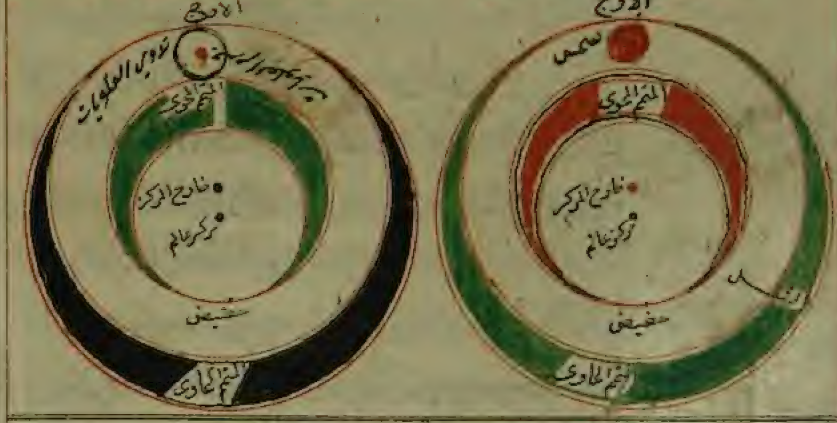 الاوج
شمس
المتمم المحوى
خارج المركز
مركز عالم
حضيض
المتمم الحاوى
الاوج
تدوير العلويات
المتمم المحوى
خارج المركز
مركز عالم
حضيض
المتمم الحاوى